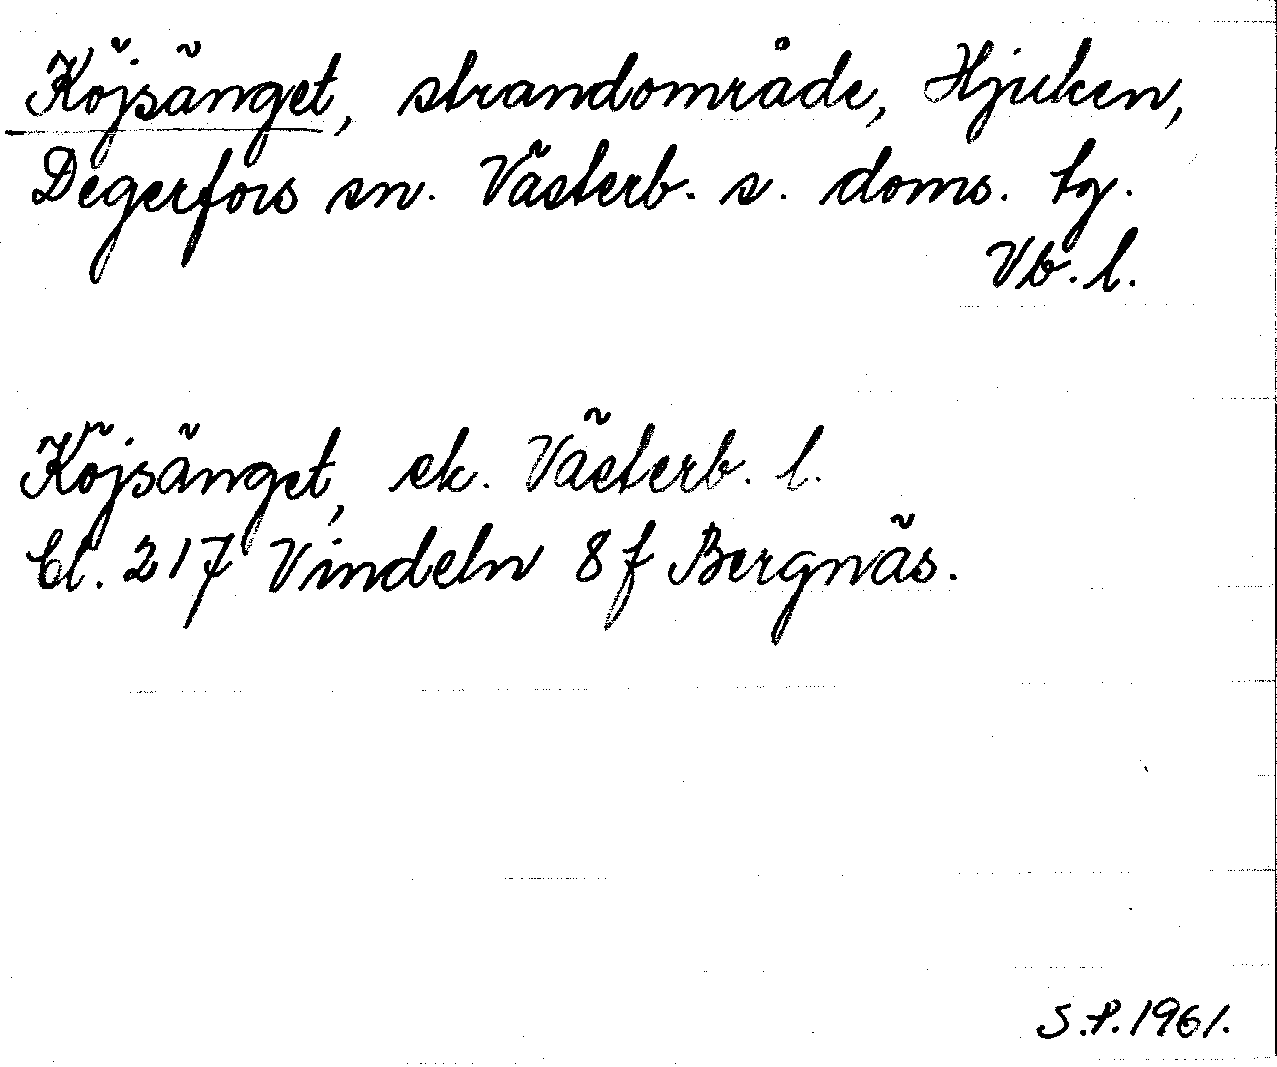 Köjsänget, strandområde, Hjuken,
Degerfors sn. Västerb. s. doms. tg.
Vb. l.
Köjsänget, ek. Västerb. l.
Bl. 217 Vindeln 8f Bergnäs.
S.P. 1961.